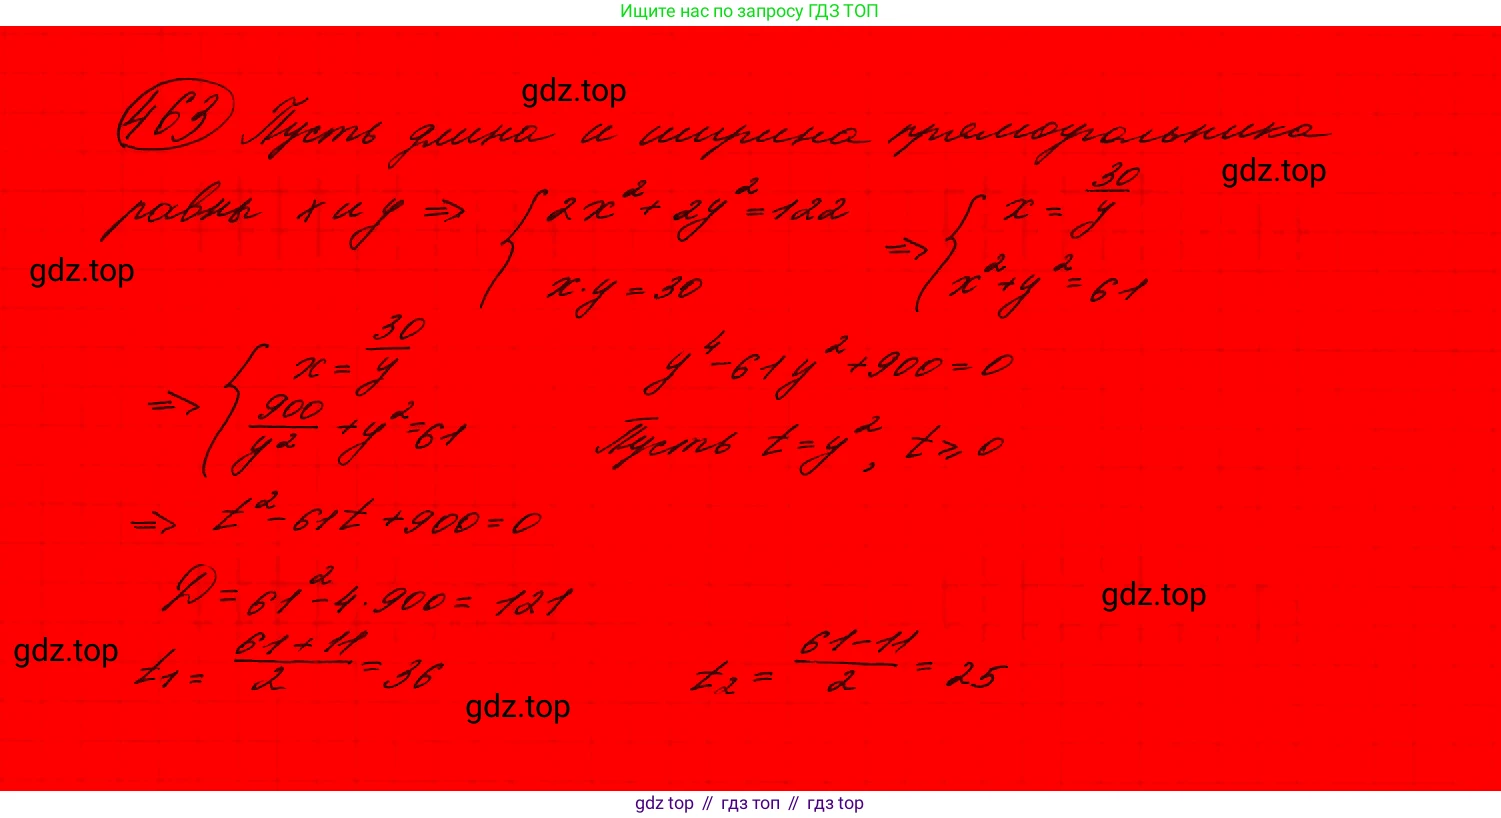 Ищите нас по запросу ГДЗ ТОП
gdz.top
463 Пусть длина и ширина прямоугольника
gdz.top
равны x и y ⇒ { 2x² + 2y² = 122 ; x·y = 30 ⇒ { x = 30/y ; x² + y² = 61
gdz.top
⇒ { x = 30/y ; 900/y² + y² = 61 y⁴ - 61y² + 900 = 0
Пусть t = y², t ⩾ 0
⇒ t² - 61t + 900 = 0
D = 61² - 4·900 = 121
gdz.top
gdz.top
t₁ = (61 + 11)/2 = 36 t₂ = (61 - 11)/2 = 25
gdz.top
gdz top // гдз топ // гдз top